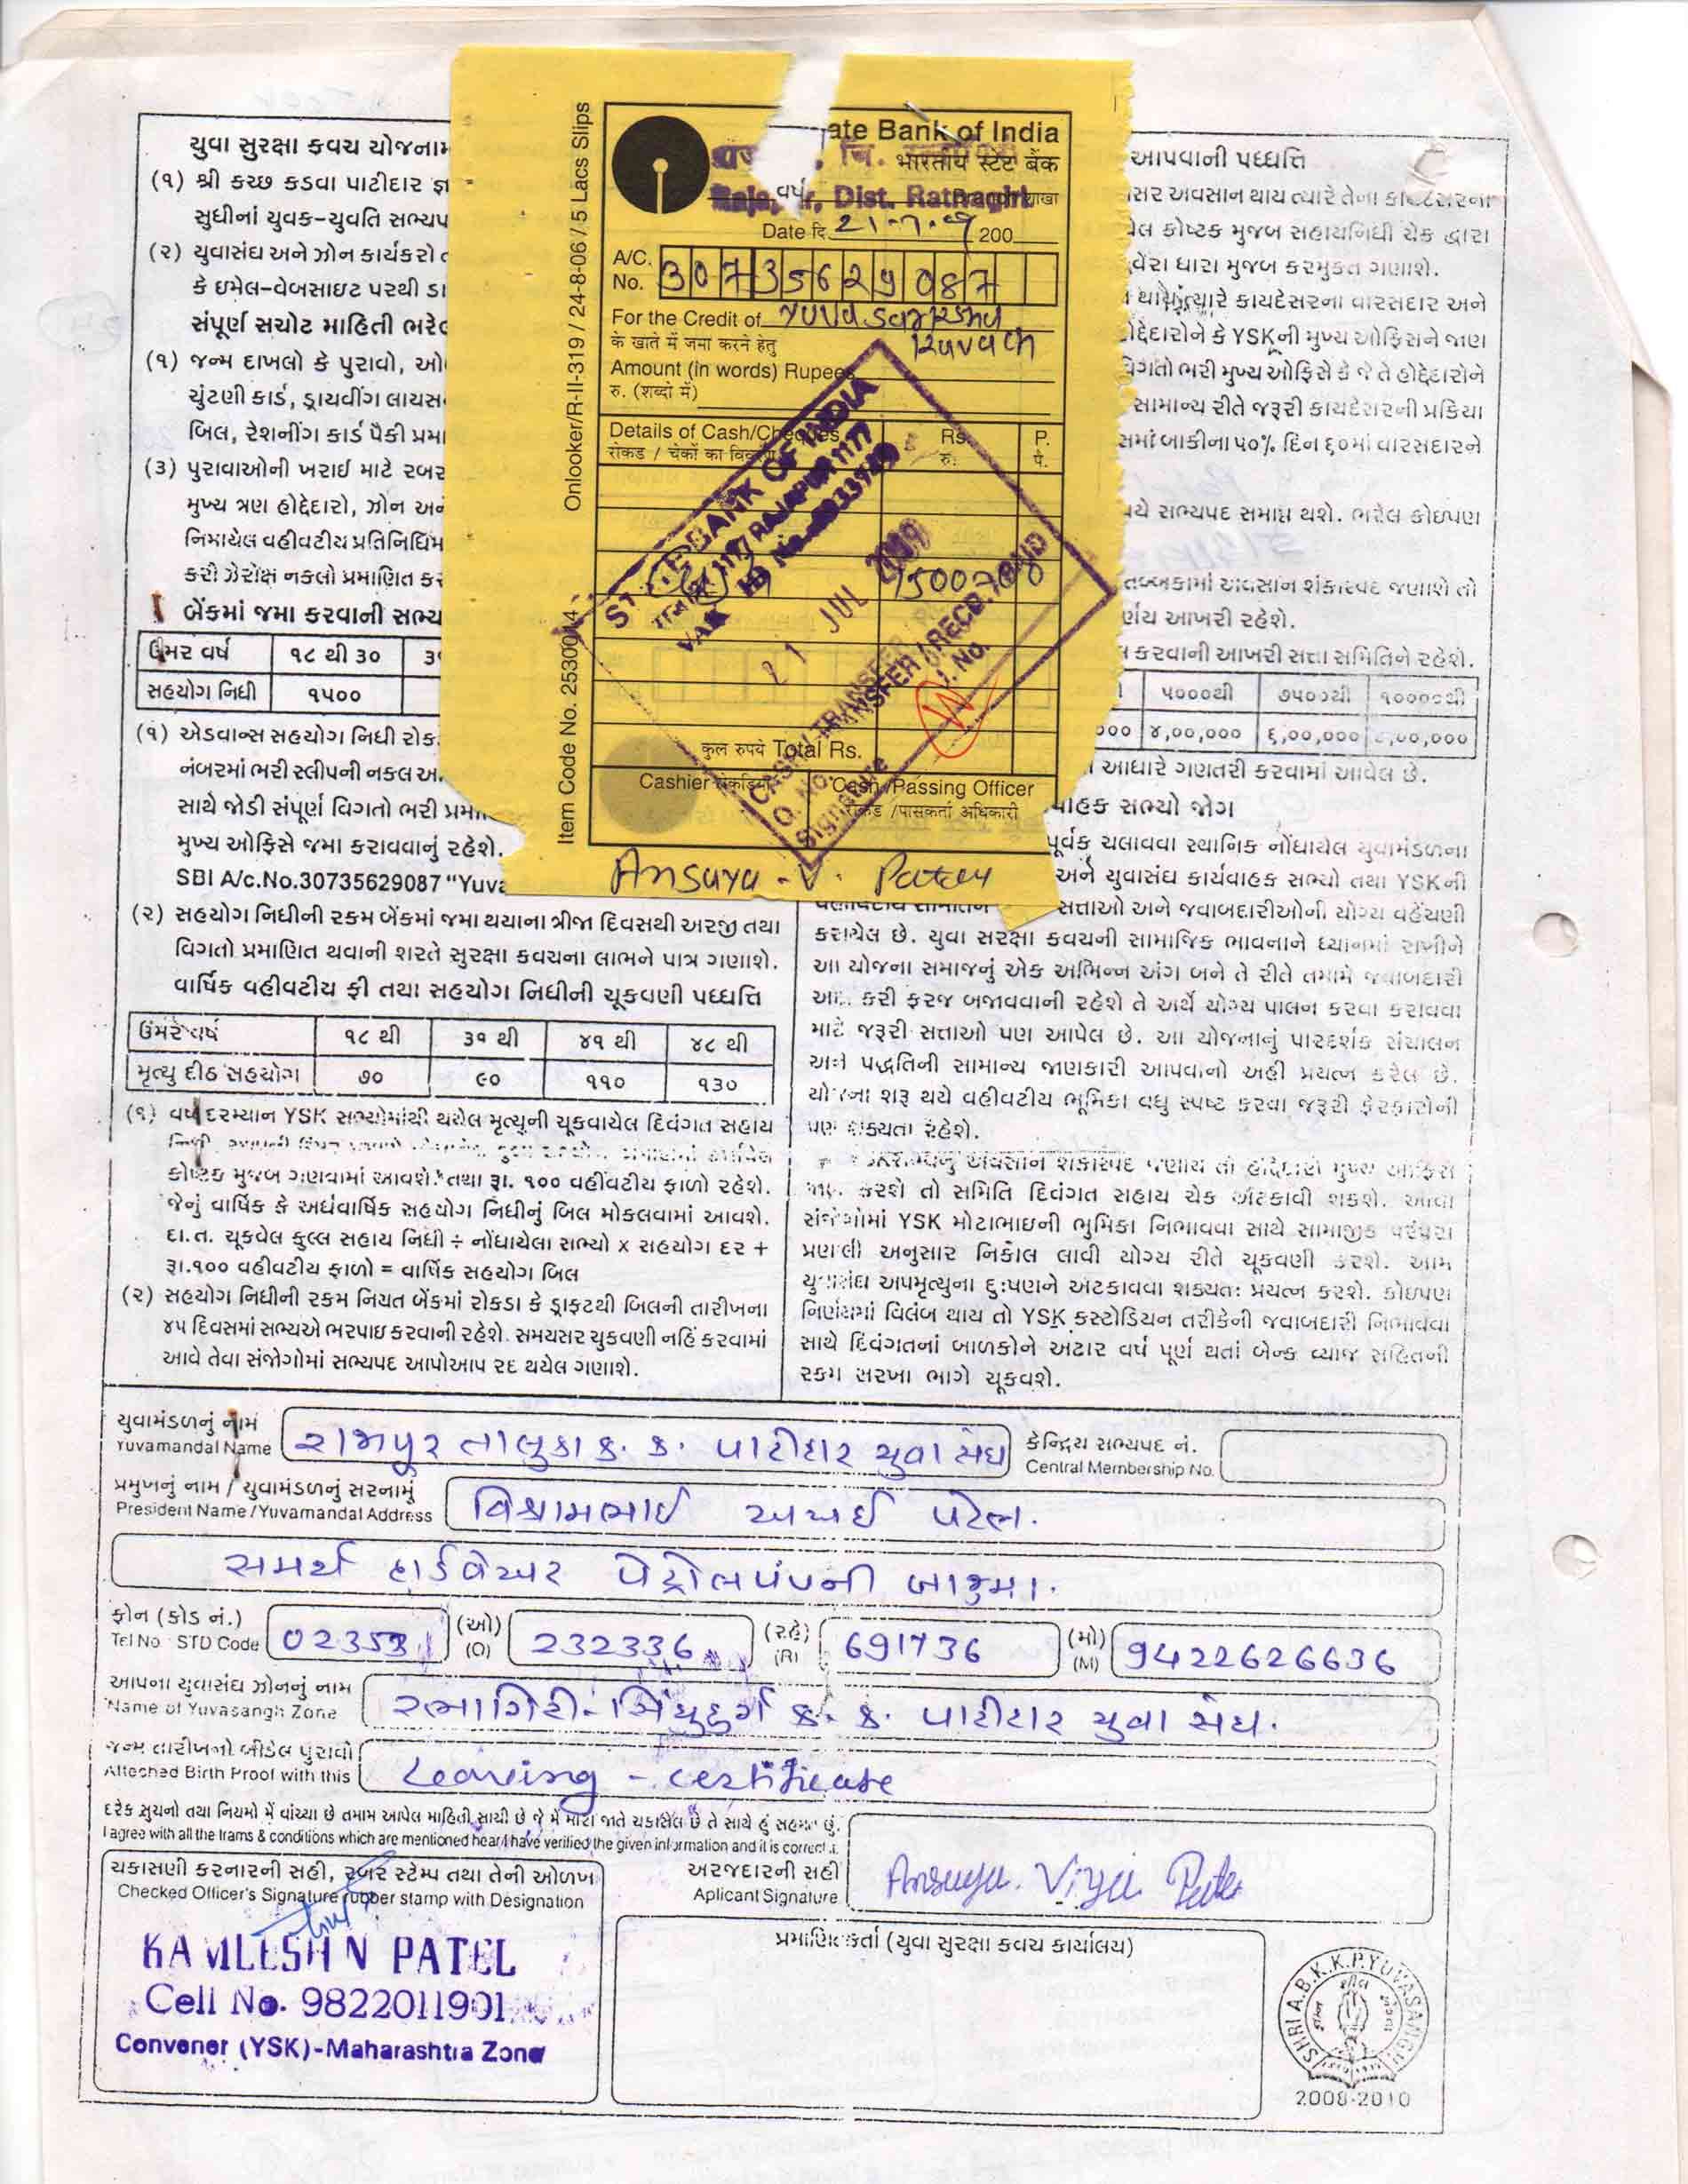 યુવા સુરક્ષા કવચ યોજનામ
(૧) શ્રી કચ્છ કડવા પાટીદાર જ્ઞ
સુધીનાં યુવક-યુવતિ સભ્યપ
(૨) યુવાસંઘ અને ઝોન કાર્યકરો
કે ઇમેલ-વેબસાઇટ પરથી ડા
સંપૂર્ણ સચોટ માહિતી ભરેલ
(૧) જન્મ દાખલો કે પુરાવો, ઓ
ચુંટણી કાર્ડ, ડ્રાયવીંગ લાયસ
બિલ, રેશનીંગ કાર્ડ પૈકી પ્રમા
(૩) પુરાવાઓની ખરાઈ માટે રબર
મુખ્ય ત્રણ હોદ્દેદારો, ઝોન અને
નિમાયેલ વહીવટીય પ્રતિનિધિમ
કરી ઝેરોક્ષ નકલો પ્રમાણિત કર
બેંકમાં જમા કરવાની સભ્ય
ઉંમર વર્ષ ૧૮ થી ૩૦
સહયોગ નિધી ૧૫૦૦
(૧) એડવાન્સ સહયોગ નિધી રોક
નંબરમાં ભરી સ્લીપની નકલ અ
સાથે જોડી સંપૂર્ણ વિગતો ભરી પ્રમા
મુખ્ય ઓફિસે જમા કરાવવાનું રહેશે.
SBI A/c.No.30735629087 “Yuva
(૨) સહયોગ નિધીની રકમ બેંકમાં જમા થયાના ત્રીજા દિવસથી અરજી તથા
વિગતો પ્રમાણિત થવાની શરતે સુરક્ષા કવચના લાભને પાત્ર ગણાશે.
વાર્ષિક વહીવટીય ફી તથા સહયોગ નિધીની ચૂકવણી પધ્ધતિ
ઉંમર વર્ષ ૧૮ થી ૩૧ થી ૪૧ થી ૪૮ થી
મૃત્યુ દીઠ સહયોગ ૭૦ ૯૦ ૧૧૦ ૧૩૦
(૧) વર્ષ દરમ્યાન YSK સભ્યોમાંથી થયેલ મૃત્યુની ચૂકવાયેલ દિવંગત સહાય
કોષ્ટક મુજબ ગણવામાં આવશે. તથા રૂા. ૧૦૦ વહીવટીય ફાળો રહેશે.
જેનું વાર્ષિક કે અર્ધવાર્ષિક સહયોગ નિધીનું બિલ મોકલવામાં આવશે.
દા.ત. ચૂકવેલ કુલ્લ સહાય નિધી ÷ નોંધાયેલા સભ્યો x સહયોગ દર +
રૂા.૧૦૦ વહીવટીય ફાળો = વાર્ષિક સહયોગ બિલ
(૨) સહયોગ નિધીની રકમ નિયત બેંકમાં રોકડા કે ડ્રાફટથી બિલની તારીખના
૪૫ દિવસમાં સભ્યએ ભરપાઇ કરવાની રહેશે. સમયસર ચુકવણી નહિં કરવામાં
આવે તેવા સંજોગોમાં સભ્યપદ આપોઆપ રદ થયેલ ગણાશે.
Onlooker/R-II-319 / 24-8-06 / 5 Lacs Slips
Item Code No. 2530014
ate Bank of India
भारतीय स्टेट बैंक
Dist. Ratnagiri
शाखा
Date दि. 21-7-09 200
A/C. No. 30735629087
For the Credit of Yuva Surksha
के खाते में जमा करने हेतु Kavach
Amount (in words) Rupees
रु. (शब्दो में)
Details of Cash/Cheques Rs. P.
रोकड / चेकों का रु. पै.
STATE BANK OF INDIA
RAJAPUR 1177
21 JUL 2009
1500=00
CASH / TRANSFER / RECD.
Signature
कुल रुपये Total Rs.
Cashier Cash/Passing Officer
रोकड /पासकर्ता अधिकारी
Ansuya - V. Patel
આપવાની પધ્ધતિ
સર અવસાન થાય ત્યારે તેના
લ કોષ્ટક મુજબ સહાયનિધી ચેક દ્વારા
વેરા ધારા મુજબ કરમુક્ત ગણાશે.
થાય ત્યારે કાયદેસરના વારસદાર અને
ોદ્દેદારોને કે YSKની મુખ્ય ઓફિસને જાણ
વિગતો ભરી મુખ્ય ઓફિસે કે જે તે હોદ્દેદારોને
સામાન્ય રીતે જરૂરી કાયદેસરની પ્રક્રિયા
સમાં બાકીના ૫૦% દિન ૬૦માં વારસદારને
યે સભ્યપદ સમાપ્ત થશે. ભરેલ કોઇપણ
તબ્બકામાં અવસાન શંકાસ્પદ જણાશે તો
ર્ણય આખરી રહેશે.
કરવાની આખરી સત્તા સમિતિને રહેશે.
૫૦૦૦થી ૭૫૦૦થી ૧૦૦૦૦થી
૦૦૦ ૪,૦૦,૦૦૦ ૬,૦૦,૦૦૦ ૮,૦૦,૦૦૦
આધારે ગણતરી કરવામાં આવેલ છે.
વાહક સભ્યો જોગ
પૂર્વક ચલાવવા સ્થાનિક નોંધાયેલ યુવામંડળના
અને યુવાસંઘ કાર્યવાહક સભ્યો તથા YSKની
સત્તાઓ અને જવાબદારીઓની યોગ્ય વહેંચણી
કરાયેલ છે. યુવા સરક્ષા કવચની સામાજિક ભાવનાને ધ્યાનમાં રાખીને
આ યોજના સમાજનું એક અભિન્ન અંગ બને તે રીતે તમામે જવાબદારી
અદા કરી ફરજ બજાવવાની રહેશે તે અર્થે યોગ્ય પાલન કરવા કરાવવા
માટે જરૂરી સત્તાઓ પણ આપેલ છે. આ યોજનાનું પારદર્શક સંચાલન
અને પદ્ધતિની સામાન્ય જાણકારી આપવાનો અહી પ્રયત્ન કરેલ છે.
યોજના શરૂ થયે વહીવટીય ભૂમિકા વધુ સ્પષ્ટ કરવા જરૂરી ફેરફારોની
પણ શક્યતા રહેશે.
અવસાન શંકાસ્પદ જણાય તો હોદ્દેદારો મુખ્ય ઓફિસે
જાણ કરશે તો સમિતિ દિવંગત સહાય ચેક અટકાવી શકશે. આવા
સંજોગોમાં YSK મોટાભાઇની ભુમિકા નિભાવવા સાથે સામાજીક પરંપરા
પ્રણાલી અનુસાર નિકાલ લાવી યોગ્ય રીતે ચૂકવણી કરશે. આમ
યુવાસંઘ અપમૃત્યુના દુઃષણને અટકાવવા શક્યતઃ પ્રયત્ન કરશે. કોઇપણ
નિર્ણયમાં વિલંબ થાય તો YSK કસ્ટોડિયન તરીકેની જવાબદારી નિભાવવા
સાથે દિવંગતનાં બાળકોને અઢાર વર્ષ પૂર્ણ થતાં બેન્ક વ્યાજ સહિતની
રકમ સરખા ભાગે ચૂકવશે.
યુવામંડળનું નામ
Yuvamandal Name રાજાપુર તાલુકા ક. ક. પાટીદાર યુવા સંઘ
કેન્દ્રિય સભ્યપદ નં.
Central Membership No.
પ્રમુખનું નામ / યુવામંડળનું સરનામું
President Name/Yuvamandal Address વિશ્રામભાઈ અખઈ પટેલ.
સમર્થ હાર્ડવેઅર પેટ્રોલપંપની બાજુમા.
ફોન (કોડ નં.) (ઓ) (રહે) (મો)
Tel No STD Code 02353 (O) 232336 (R) 691736 (M) 9422626636
આપના યુવાસંઘ ઝોનનું નામ
Name of Yuvasangh Zone રત્નાગિરી-સિંધુદુર્ગ ક. ક. પાટીદાર યુવા સંઘ.
જન્મ તારીખનો બીડેલ પુરાવો
Atteched Birth Proof with this Leaving - certificate
દરેક સુચનો તથા નિયમો મેં વાંચ્યા છે તમામ આપેલ માહિતી સાચી છે જે મેં મારી જાતે ચકાસેલ છે તે સાથે હું સહમત છું.
I agree with all the trams & conditions which are mentioned hear I have verified the given information and it is correct
ચકાસણી કરનારની સહી, રબર સ્ટેમ્પ તથા તેની ઓળખ
Checked Officer's Signature rubber stamp with Designation
અરજદારની સહી
Aplicant Signature Ansuya. Vijay Patel
KAMLESH N PATEL
Cell No. 9822011901
Convener (YSK)-Maharashtra Zone
પ્રમાણિતકર્તા (યુવા સુરક્ષા કવચ કાર્યાલય)
SHRI A.B.K.K.P.YUVASANGH
2008-2010